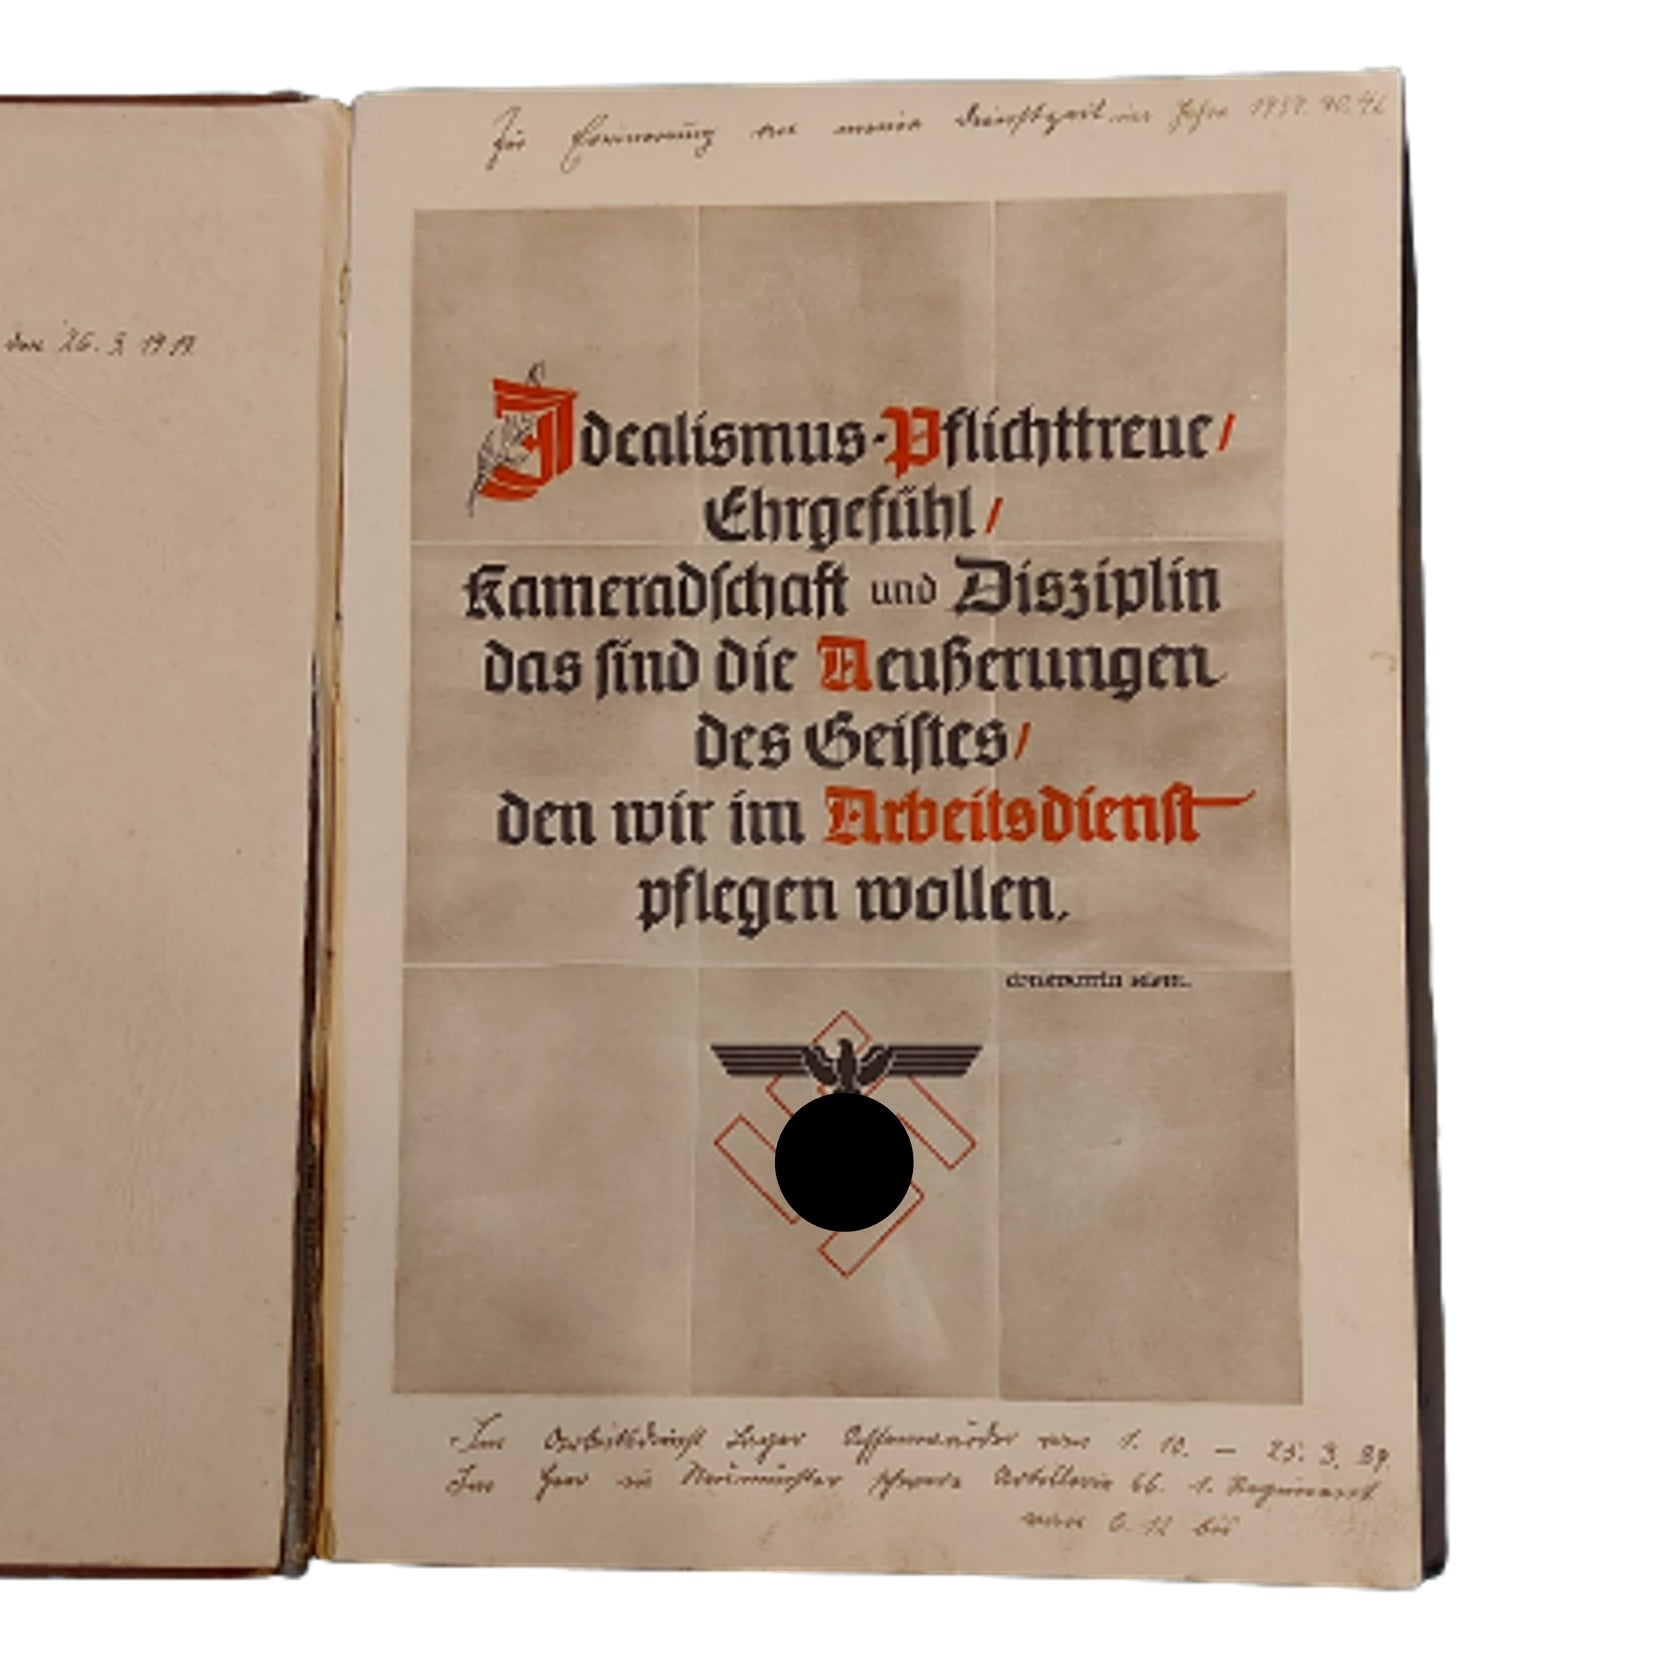 den 26. 3. 19
Zur Erinnerung an meine Dienstzeit im Jahre 1939. 40. 41
Idealismus-Pflichttreue/
Ehrgefühl/
Kameradſchaft und Disziplin
das ſind die Aeußerungen
des Geiſtes/
den wir im Arbeitsdienſt
pflegen wollen.
Im Arbeitsdienst Lager vom 1. 10. – 25. 3. 39.
Im Heer in Neumünster schwere Artillerie 66. 1. Regiment
vom 6. 12 bis